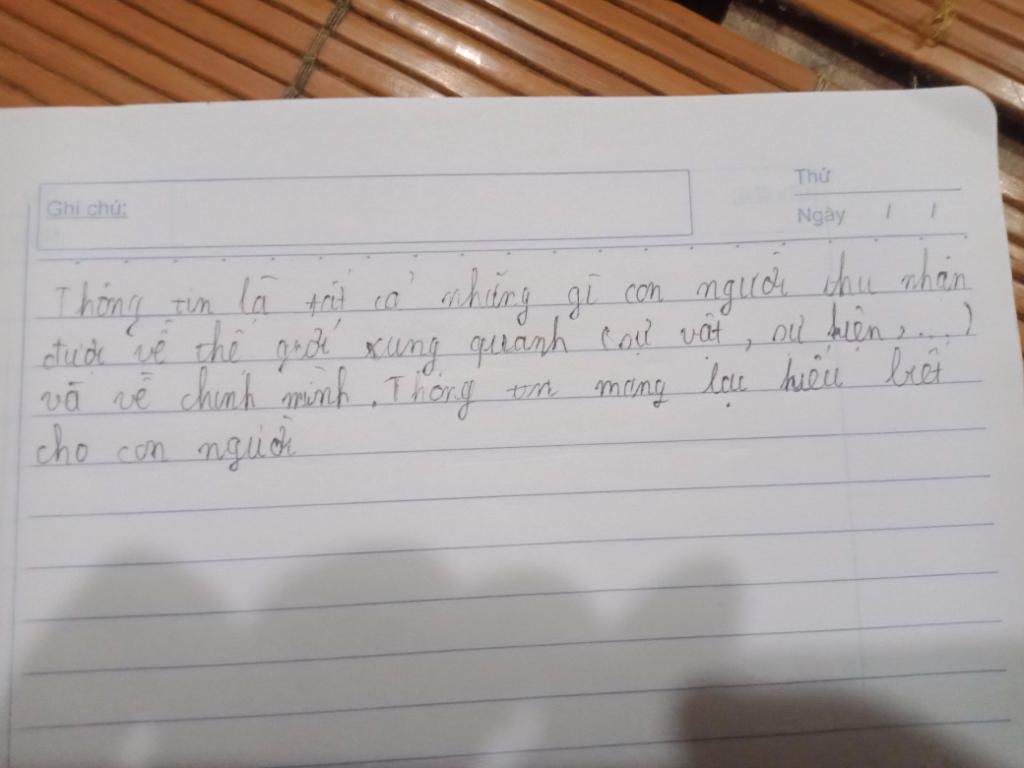 Ghi chú:
Thứ
Ngày / /
Thông tin là tất cả những gì con người thu nhận
được về thế giới xung quanh (sự vật, sự kiện, ...)
và về chính mình. Thông tin mang lại hiểu biết
cho con người